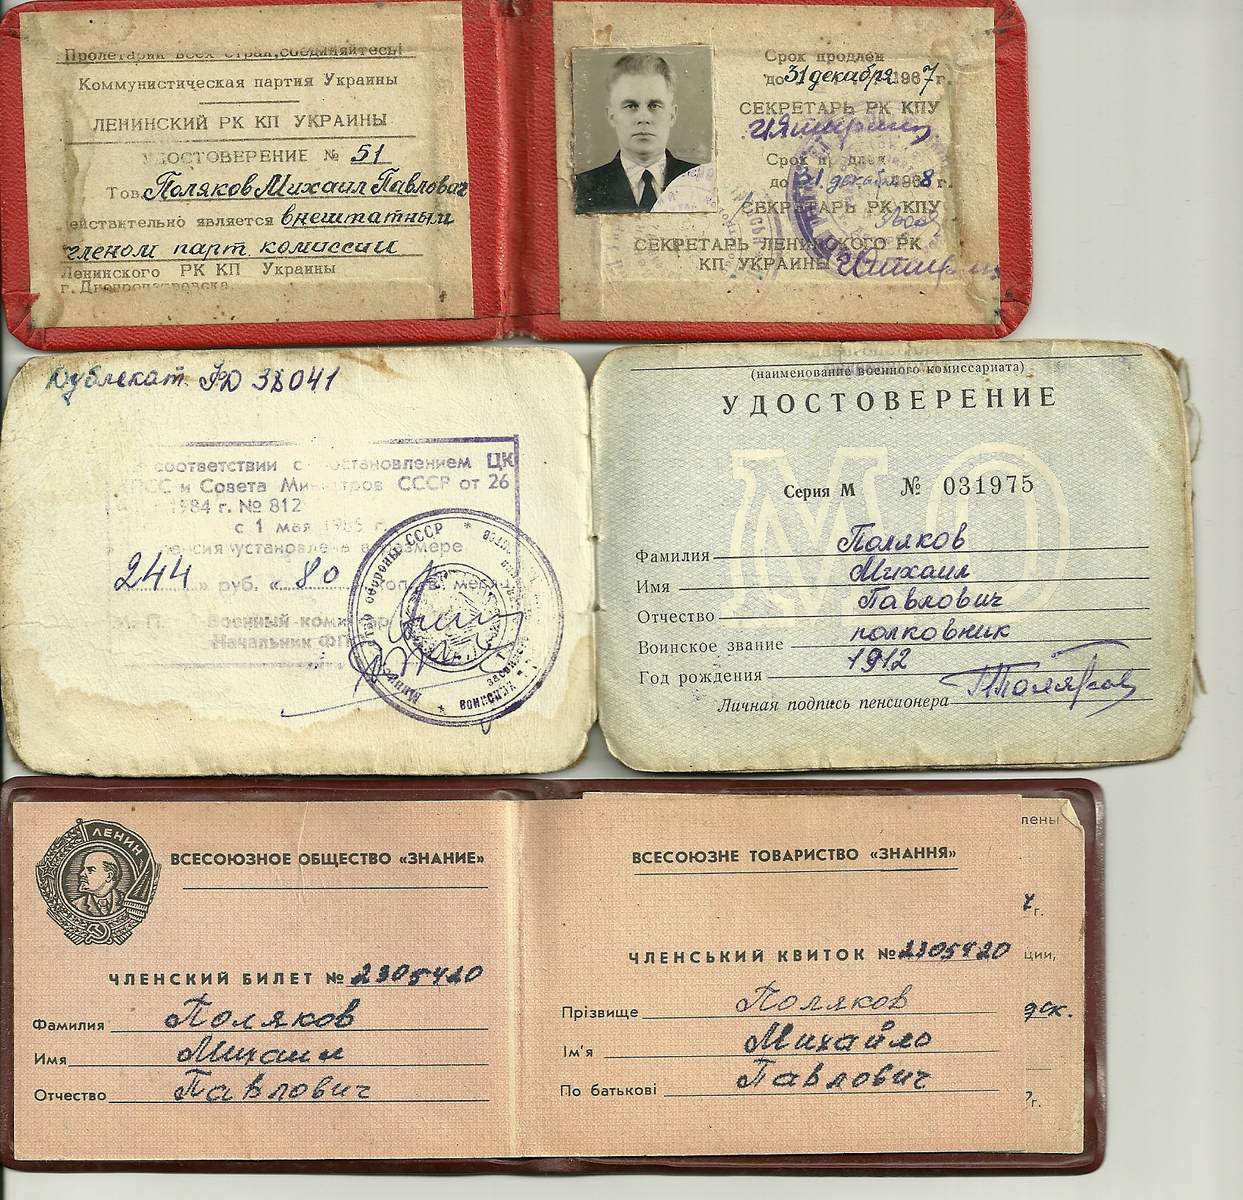 Пролетарии всех стран, соединяйтесь!
Коммунистическая партия Украины
ЛЕНИНСКИЙ РК КП УКРАИНЫ
УДОСТОВЕРЕНИЕ № 51
Тов. Поляков Михаил Павлович
действительно является внештатным
членом парт комиссии
Ленинского РК КП Украины
г. Днепропетровска
Срок продлен
до 31 декабря 1967 г.
СЕКРЕТАРЬ РК КПУ
Срок продлен
до 31 декабря 1968 г.
СЕКРЕТАРЬ РК КПУ
СЕКРЕТАРЬ ЛЕНИНСКОГО РК
КП УКРАИНЫ
Дубликат. РД 38041
соответствии с постановлением ЦК
КПСС и Совета Министров СССР от 26
1984 г. № 812
с 1 мая 1985 г.
пенсия установлена в размере
244 » руб. « 80 коп. в месяц
М. П. Военный комиссар
Начальник ФПО
(наименование военного комиссариата)
УДОСТОВЕРЕНИЕ
МО
Серия М № 031975
Фамилия Поляков
Имя Михаил
Отчество Павлович
Воинское звание полковник
Год рождения 1912
Личная подпись пенсионера МПоляков
ЛЕНИН
ВСЕСОЮЗНОЕ ОБЩЕСТВО «ЗНАНИЕ»
ЧЛЕНСКИЙ БИЛЕТ № 2305420
Фамилия Поляков
Имя Михаил
Отчество Павлович
ВСЕСОЮЗНЕ ТОВАРИСТВО «ЗНАННЯ»
ЧЛЕНСЬКИЙ КВИТОК № 2305420
Прізвище Поляков
Ім'я Михайло
По батькові Павлович
лены
7 г.
ции,
дск.
7 г.